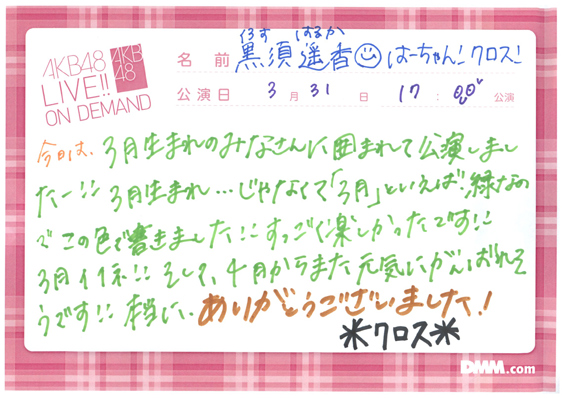 AKB48
LIVE!!
ON DEMAND
AKB
48
くろす はるか
名前 黒須遥香 はーちゃん!クロス!
公演日 3月31日 17:00 公演
今日は、3月生まれのみなさんに囲まれて公演しまし
たー!! 3月生まれ…じゃなくて「3月」といえば、緑なの
でこの色で書きました!! すっごく楽しかったです!!
3月イイネ!! そして、4月からまた元気にがんばれそ
うです!! 本当に、ありがとうございました!
*クロス*
DMM.com